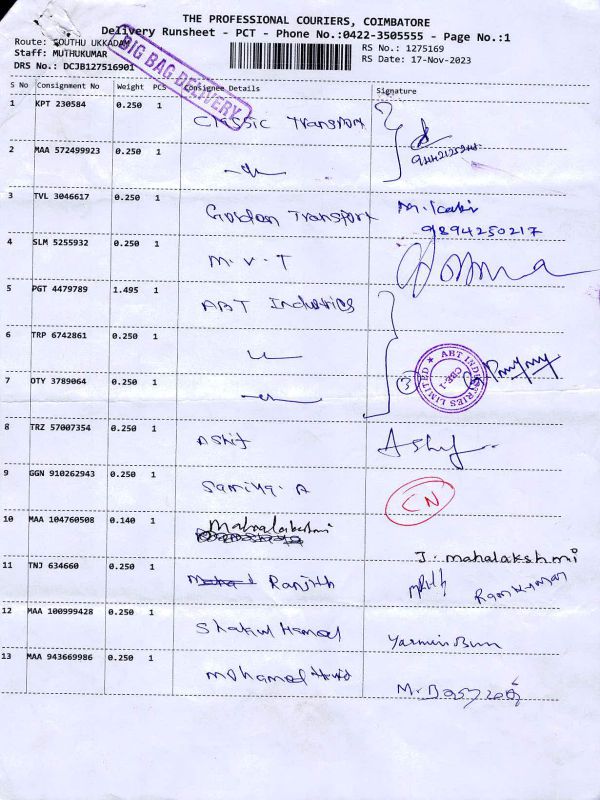 THE PROFESSIONAL COURIERS, COIMBATORE
Delivery Runsheet - PCT - Phone No.:0422-3505555 - Page No.:1
Route: SOUTHU UKKADAM
Staff: MUTHUKUMAR
DRS No.: DCJB127516901
RS No.: 1275169
RS Date: 17-Nov-2023
BIG BAG DELIVERY
S No Consignment No Weight PCS Consignee Details Signature
1 KPT 230584 0.250 1 Classic Transport
2 MAA 572499923 0.250 1
3 TVL 3046617 0.250 1 Golden Transport M. 
9894250217
4 SLM 5255932 0.250 1 M.V.T
5 PGT 4479789 1.495 1 ABT Industries
6 TRP 6742861 0.250 1
7 OTY 3789064 0.250 1
ABT INDUSTRIES LIMITED
CBE-1
8 TRZ 57007354 0.250 1 Ashif Ashif
9 GGN 910262943 0.250 1 CN
10 MAA 104760508 0.140 1 Mahalakshmi
J. mahalakshmi
11 TNJ 634660 0.250 1 Ranjith
12 MAA 100999428 0.250 1 Shakul Hameed
13 MAA 943669986 0.250 1 Mohamed